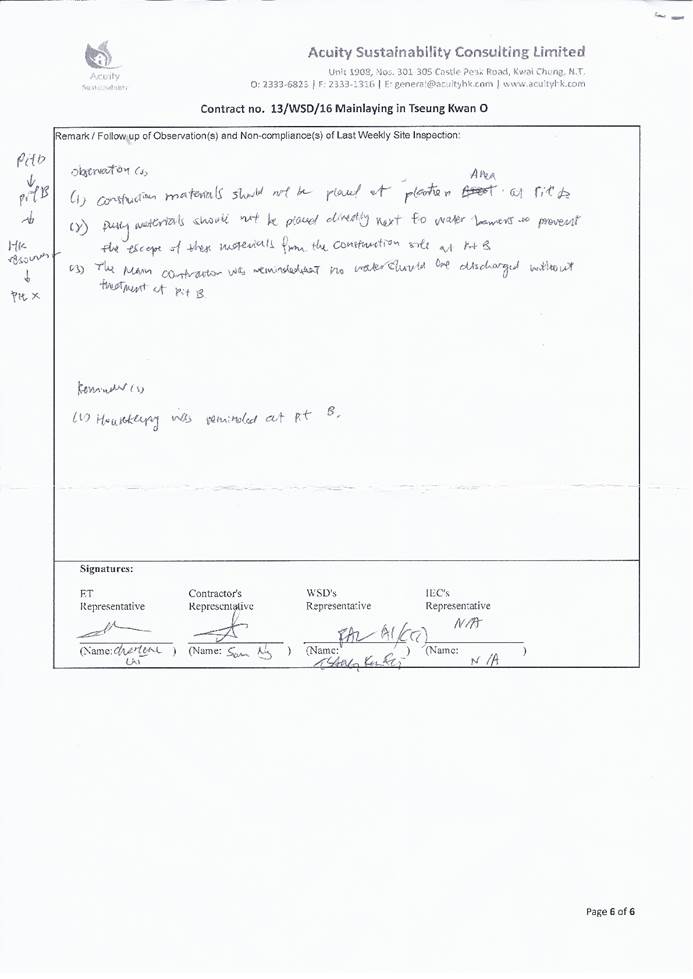 Acuity
Sustainability
Acuity Sustainability Consulting Limited
Unit 1908, Nos. 301-305 Castle Peak Road, Kwai Chung, N.T.
O: 2333-6823 | F: 2333-1316 | E: general@acuityhk.com | www.acuityhk.com
Contract no. 13/WSD/16 Mainlaying in Tseung Kwan O
Remark / Follow up of Observation(s) and Non-compliance(s) of Last Weekly Site Inspection:
Pit D
↓
Pit B
↓
HK
↓
Pit X
Observation (s)
Area
(1) Construction materials should not be placed at at Pit
(2) Dusty materials should not be placed directly next to water barriers to prevent
the escape of these materials from the construction site at Pit B
(3) The Main contractor was reminded that no water should be discharged without
treatment at Pit B
Reminder (s)
(1) Housekeeping was reminded at Pit B.
Signatures:
ET Contractor's WSD's IEC's
Representative Representative Representative Representative
N/A
(Name: ) (Name: Sam Ng ) (Name: ) (Name: N/A )
Page 6 of 6